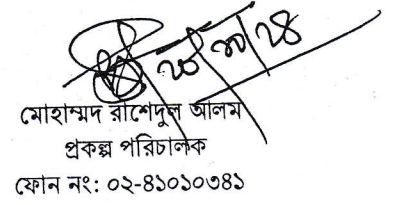 মোহাম্মদ রাশেদুল আলম
প্রকল্প পরিচালক
ফোন নং: ০২-৪১০১০৩৪১